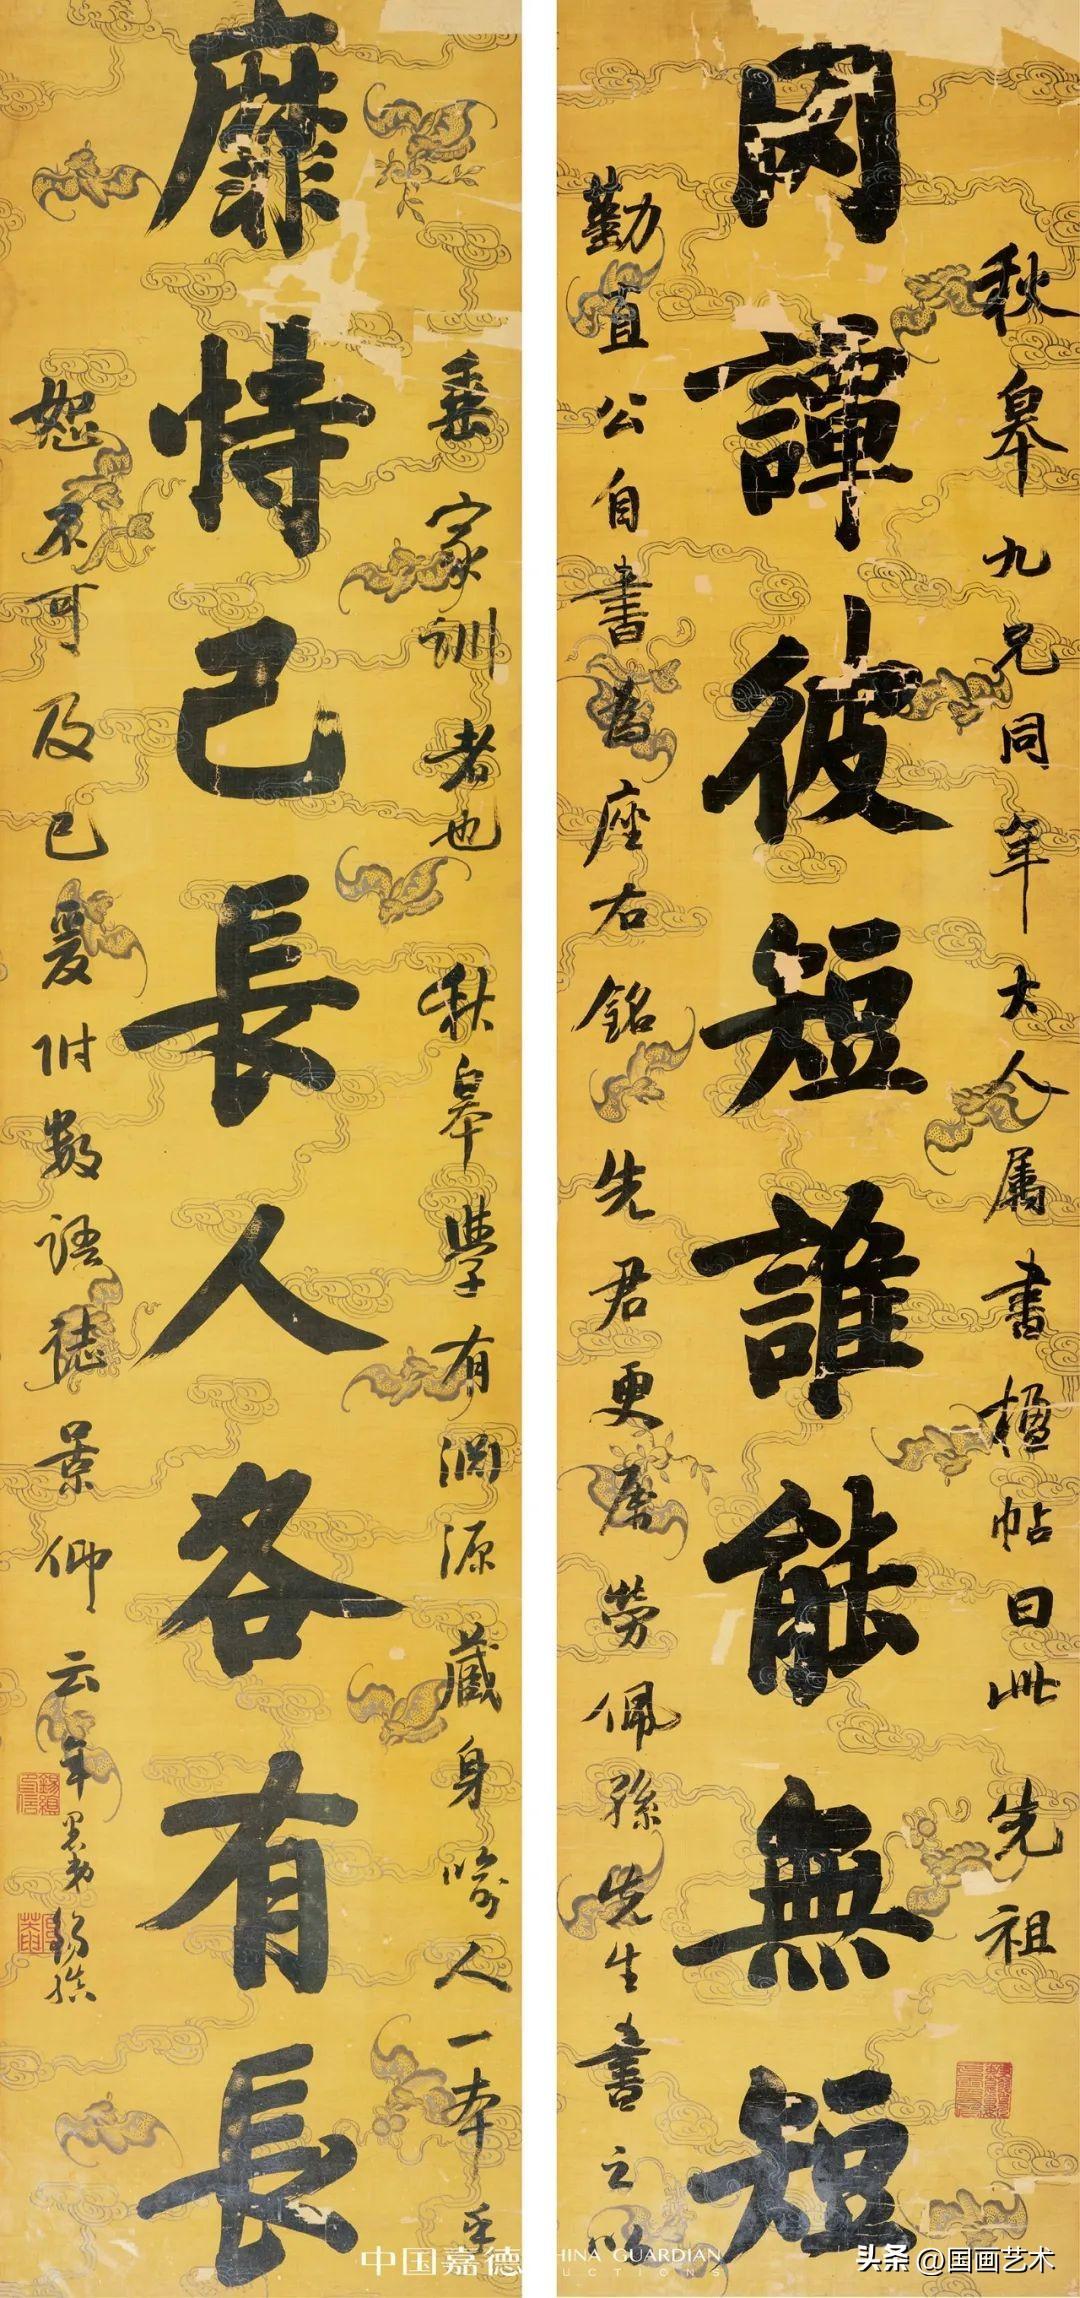 秋皋九兄同年大人属書楹帖曰此先祖
罔譚彼短誰能無短
勤直公自書為座右銘先君更屬勞佩孫先生書之以
垂家訓者也秋皋學有淵源藏身喻人一本至
靡恃己長人各有長
恕不可及已爰附數語誌景仰云年愚弟錫縝
中国嘉德
HINA GUARDIAN
UCTIONS
头条 @国画艺术